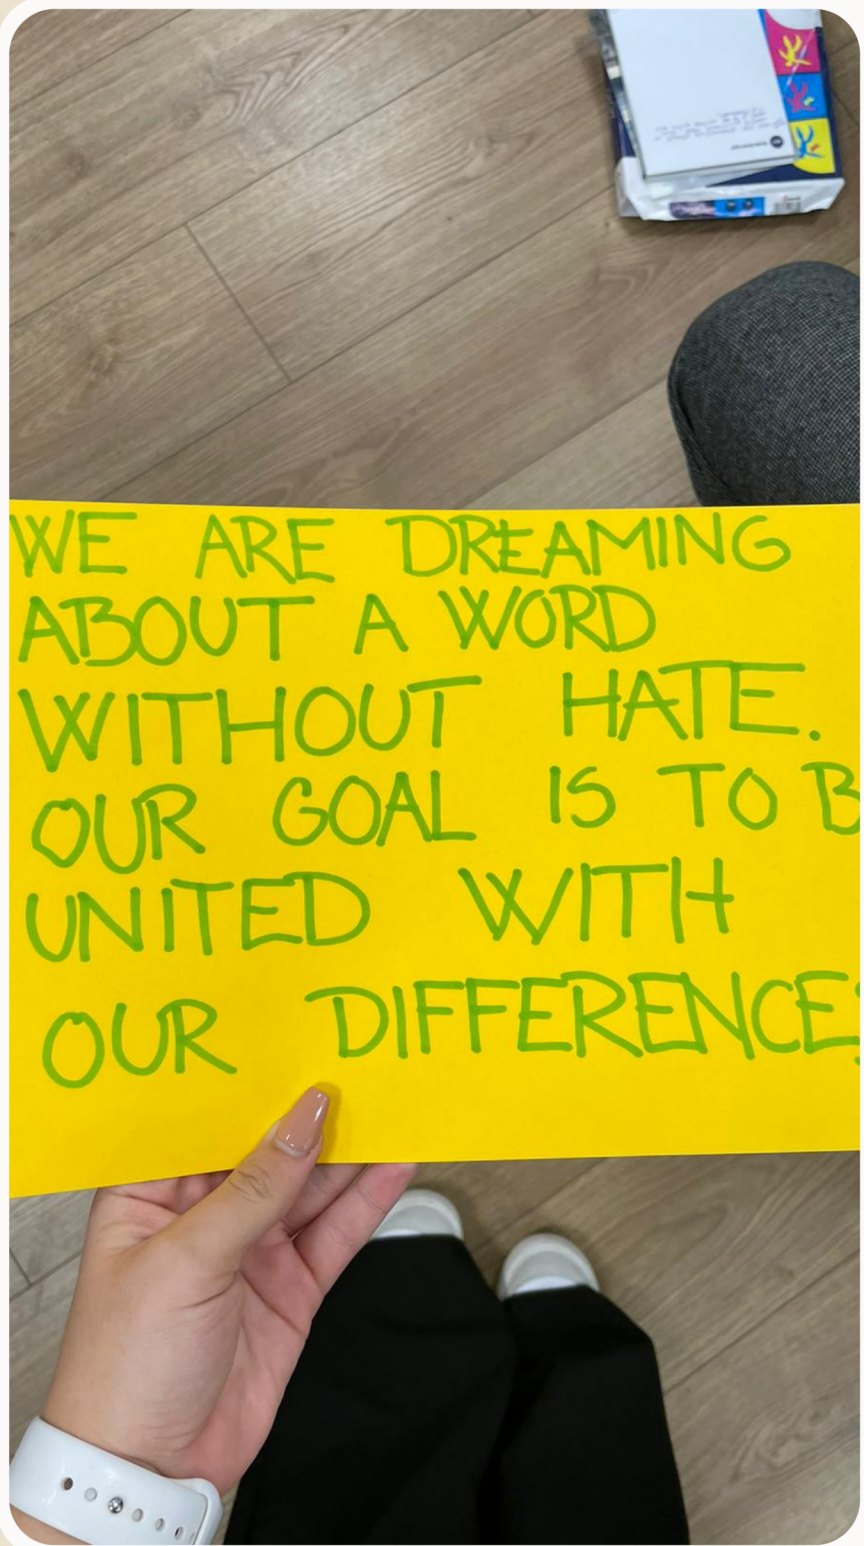 WE ARE DREAMING
ABOUT A WORD
WITHOUT HATE.
OUR GOAL IS TO B
UNITED WITH
OUR DIFFERENCES